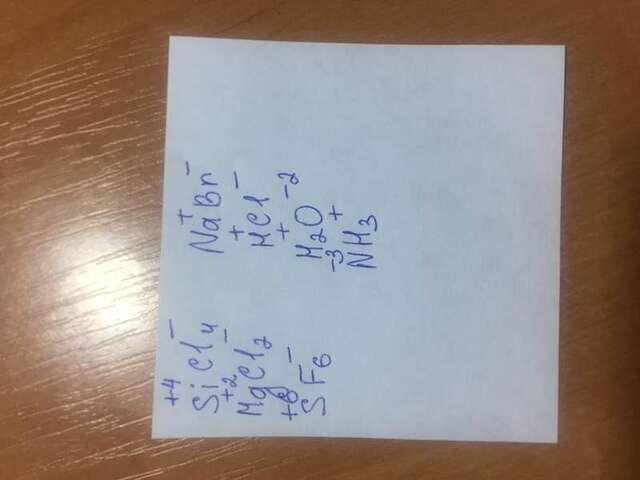 +4 SiCl4 −
+2 MgCl2 −
+6 SF6 −
Na+Br−
H+Cl−
H2+O−2
−3 NH3 +